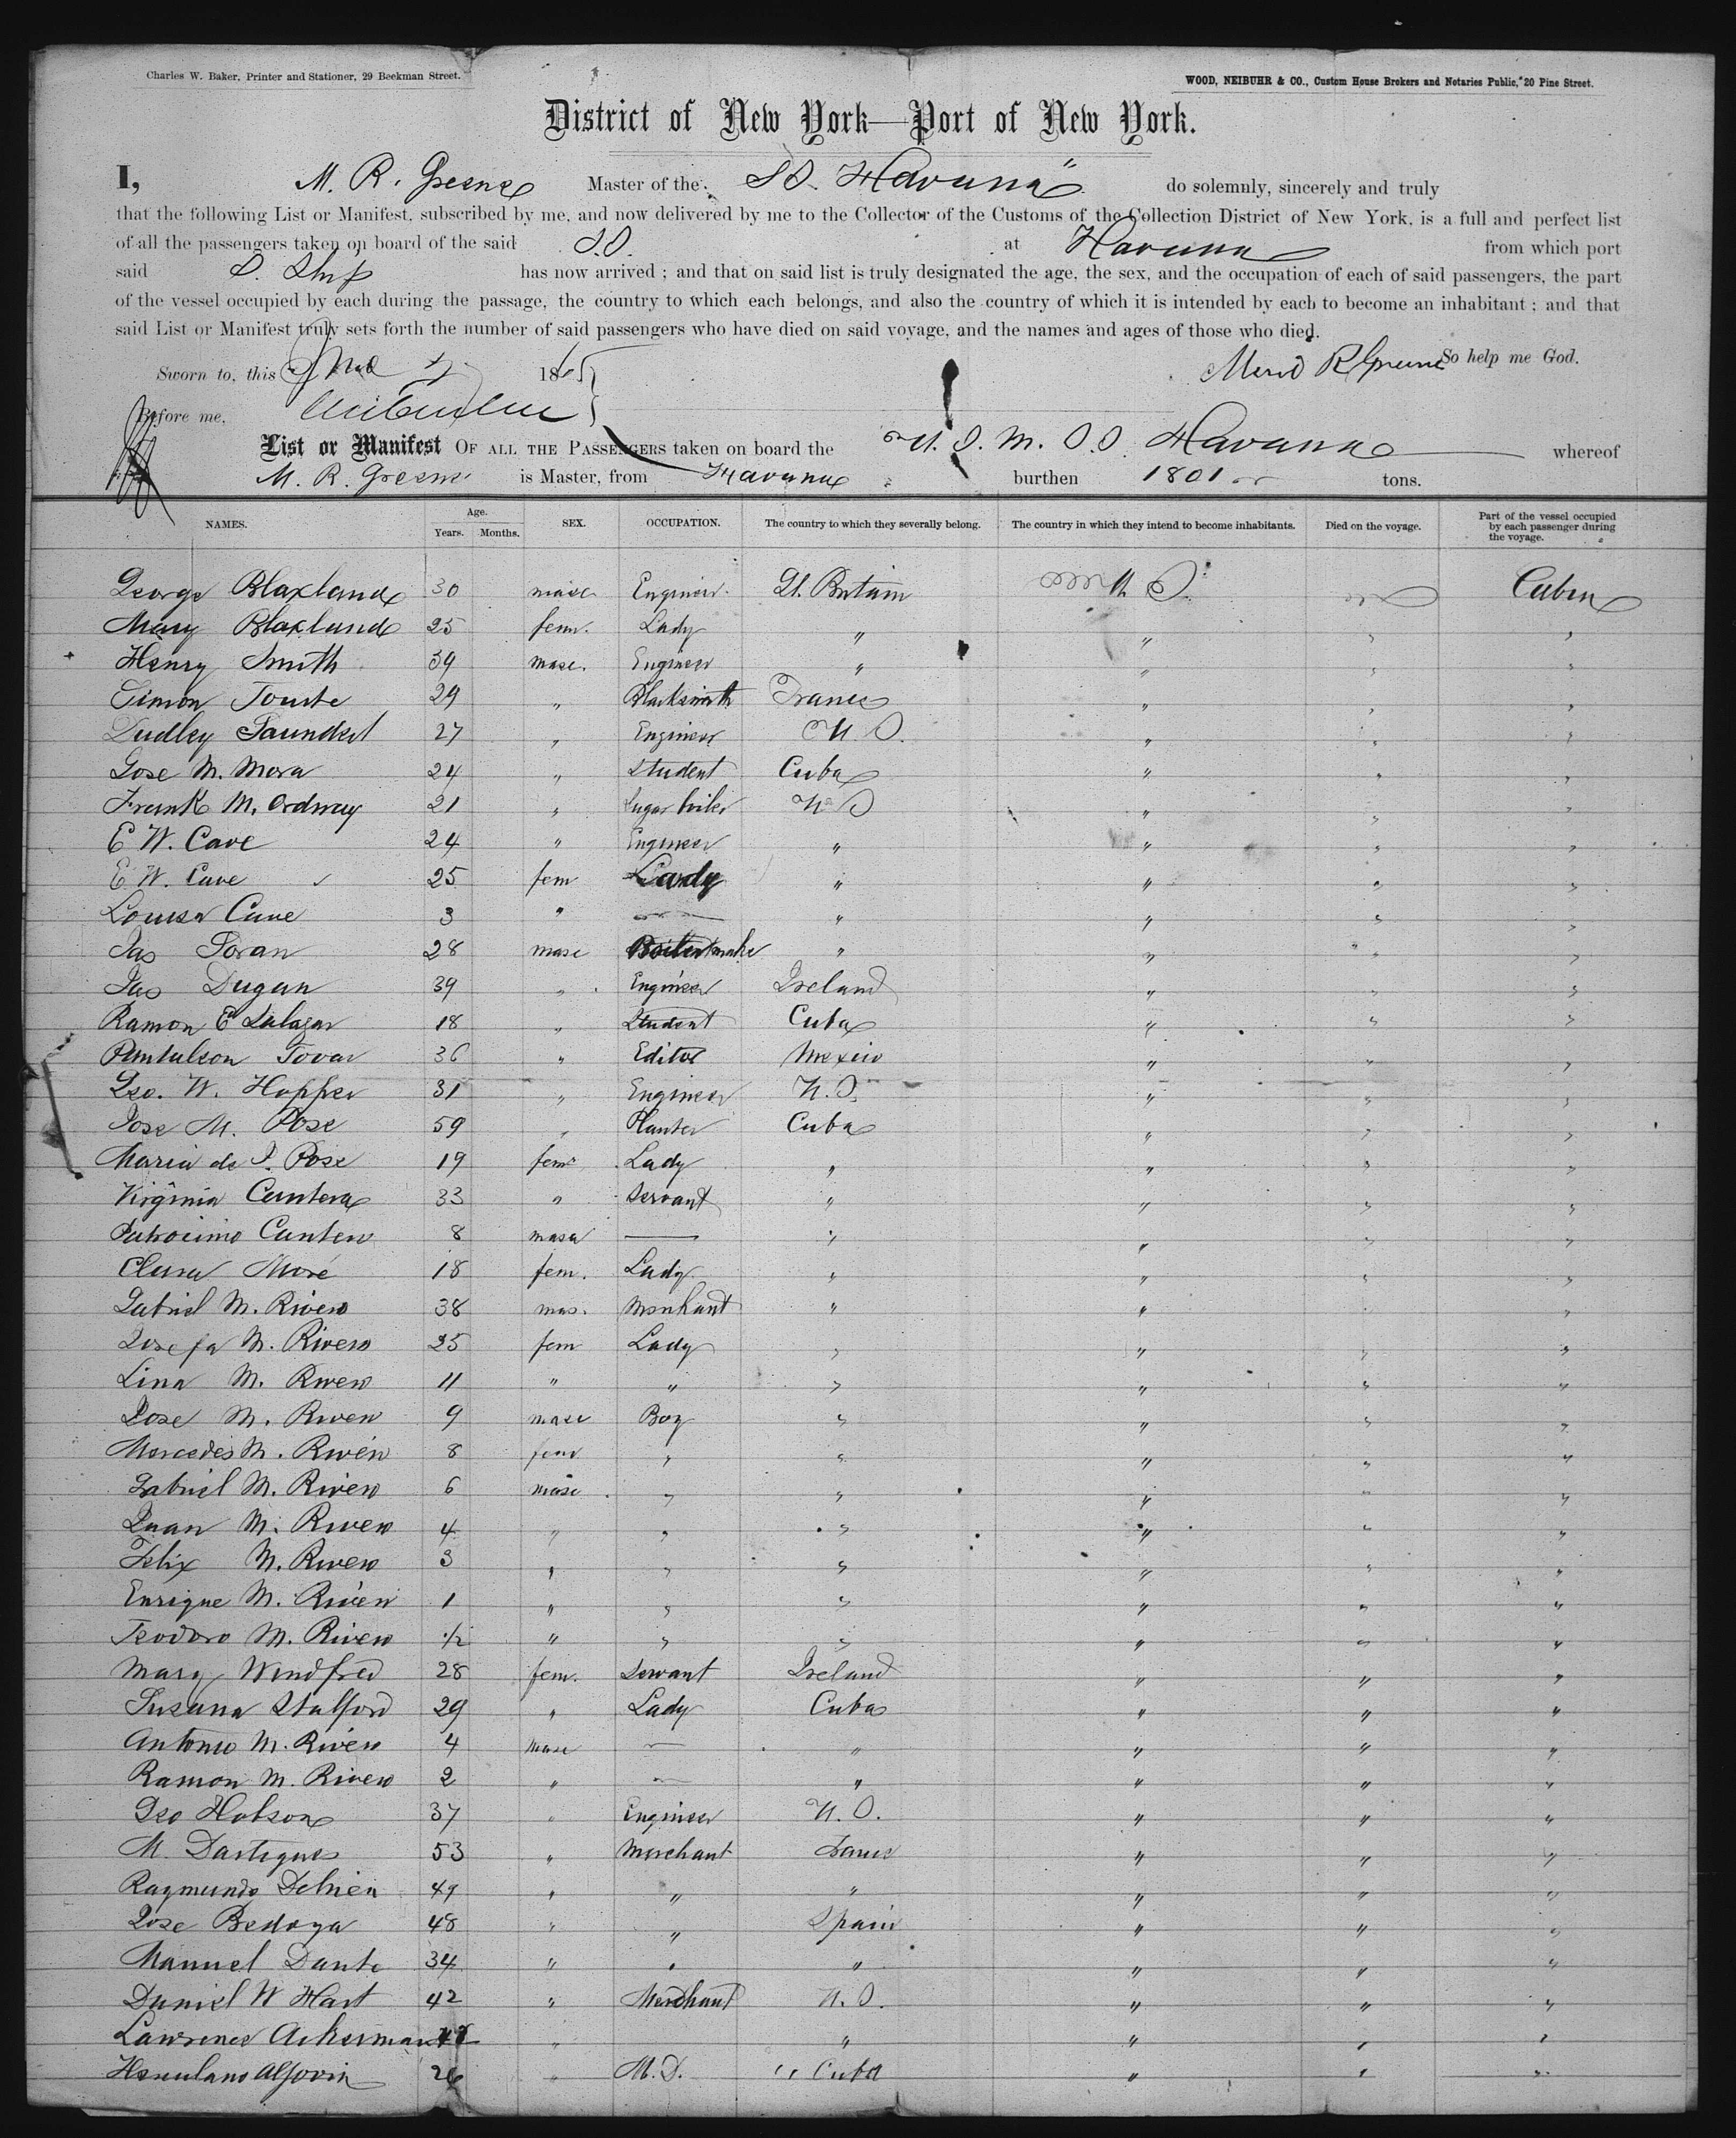 Charles W. Baker, Printer and Stationer, 29 Beekman Street.
WOOD, NEIBUHR & CO., Custom House Brokers and Notaries Public, 20 Pine Street.
District of New York—Port of New York.
I, M. R. Greene Master of the S.S. Havana" do solemnly, sincerely and truly
that the following List or Manifest, subscribed by me, and now delivered by me to the Collector of the Customs of the Collection District of New York, is a full and perfect list
of all the passengers taken on board of the said S.S. at Havana from which port
said S. Ship has now arrived ; and that on said list is truly designated the age, the sex, and the occupation of each of said passengers, the part
of the vessel occupied by each during the passage, the country to which each belongs, and also the country of which it is intended by each to become an inhabitant ; and that
said List or Manifest truly sets forth the number of said passengers who have died on said voyage, and the names and ages of those who died.
So help me God.
Sworn to, this 18 R Greene
Before me,
List or Manifest OF ALL THE PASSENGERS taken on board the U. S. M. S.S. Havana whereof
M. R. Greene is Master, from Havana burthen 1801 tons.
NAMES. Age. Years. Months. SEX. OCCUPATION. The country to which they severally belong. The country in which they intend to become inhabitants. Died on the voyage. Part of the vessel occupied by each passenger during the voyage.
George Blaxland 30 masc Engineer Gt. Britain U S. Cabin
Mary Blaxland 25 fem. Lady " " " "
Henry Smith 39 masc. Engineer " " " "
Simon Tourte 29 " Blacksmith France " " "
Dudley Saunders 27 " Engineer U. S. " " "
Jose M. Mora 24 " Student Cuba " " "
Frank M. Ordway 21 " Sugar boiler U S " " "
E W. Cave 24 " Engineer " " " "
E. W. Cave 25 fem Lady " " " "
Louisa Cave 3 " — " " " "
Jas Foran 28 masc Boiler make " " " "
Jas Dugan 39 " Engineer Ireland " " "
Ramon E Salazar 18 " Student Cuba " " "
Pantaleon Tovar 36 " Editor Mexico " " "
Geo. W. Hopper 31 " Engineer U. S. " " "
Jose M. Pose 59 " Planter Cuba " " "
Maria de J. Pose 19 fem Lady " " " "
Virginia Cantera 33 " Servant " " " "
Patrocinio Cantero 8 masc — " " " "
Clara Moré 18 fem. Lady " " " "
Gabriel M. Rivero 38 mas. Merchant " " " "
Josefa M. Rivero 25 fem Lady " " " "
Lina M. Rivero 11 " " " " " "
Jose M. Rivero 9 masc Boy " " " "
Mercedes M. Rivero 8 fem " " " " "
Gabriel M. Rivero 6 masc " " " " "
Juan M. Rivero 4 " " " " " "
Felix M. Rivero 3 " " " " " "
Enrique M. Rivero 1 " " " " " "
Teodoro M. Rivero 1/2 " " " " " "
Mary Windfred 28 fem. Servant Ireland " " "
Susana Stalford 29 " Lady Cuba " " "
Antonio M. Rivero 4 masc — " " " "
Ramon M. Rivero 2 " — " " " "
Geo Hobson 37 " Engineer U. S. " " "
M. Dartigues 53 " Merchant France " " "
Raymundo 49 " " " " " "
Jose Bedoya 48 " " Spain " " "
Manuel Dante 34 " " " " " "
Daniel W Hart 42 " Merchant U. S. " " "
Lawrence Ackerman " " " " "
Herculano 26 " M. D. " Cuba " " "